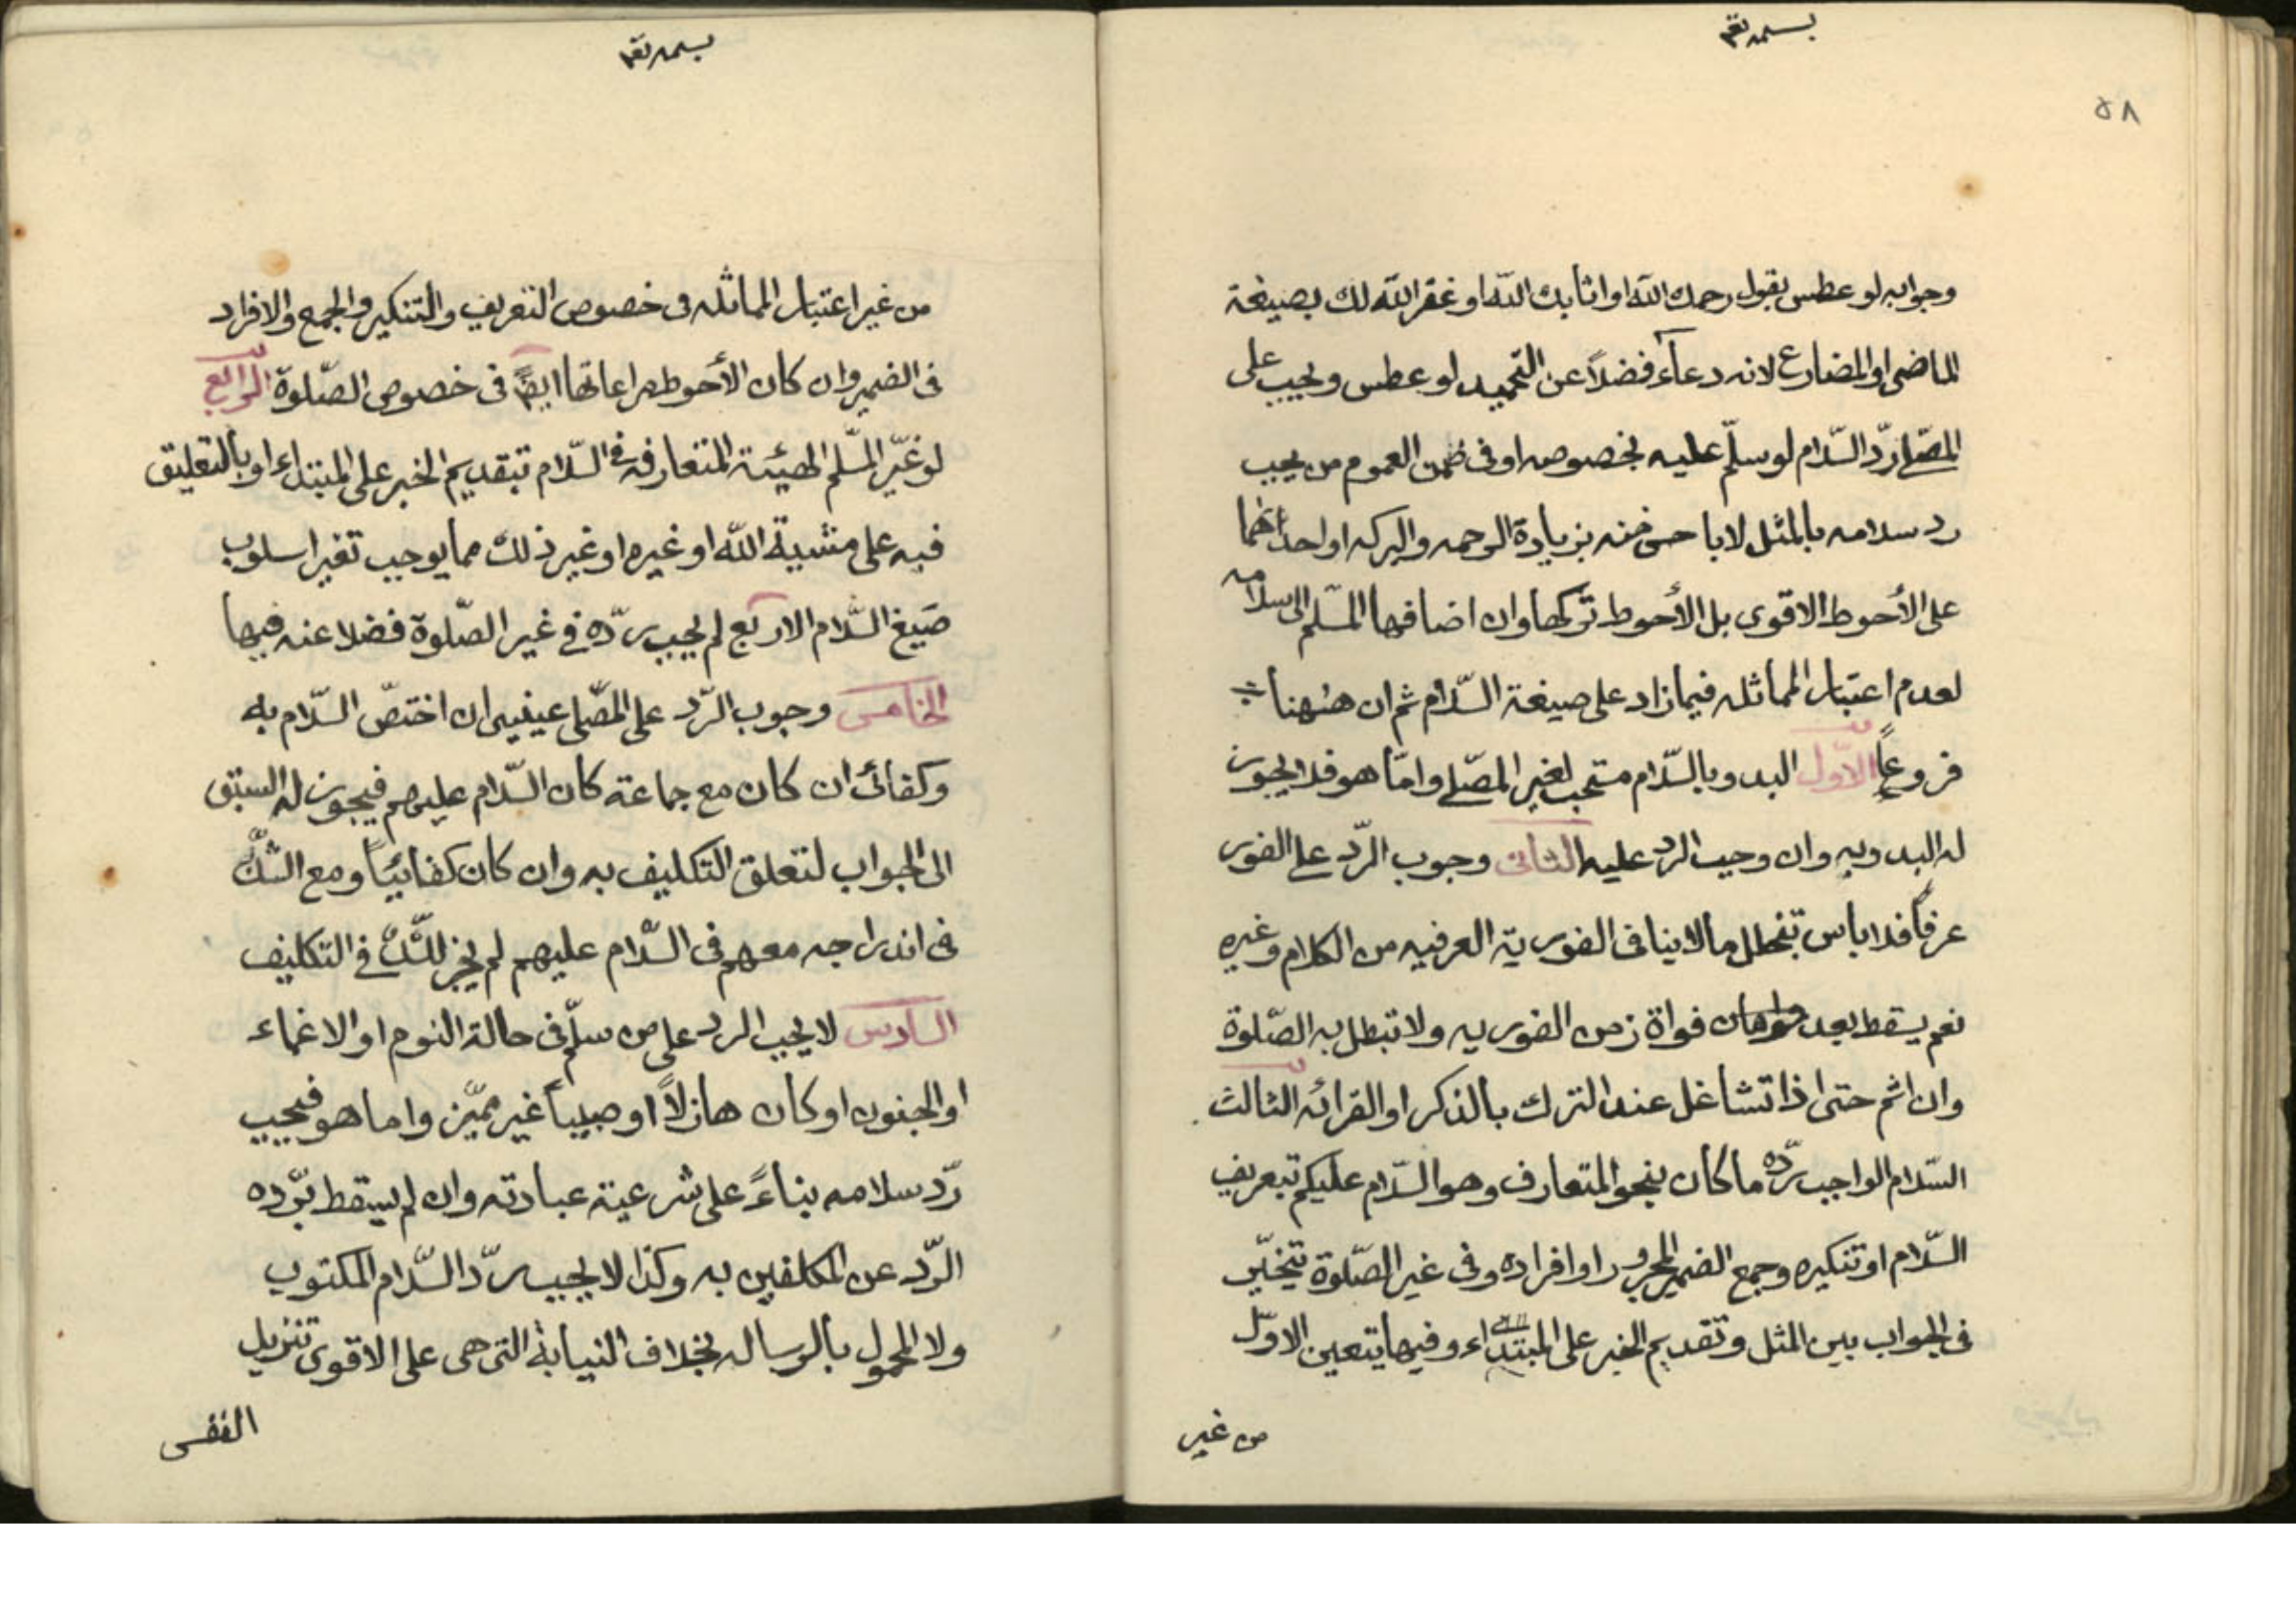 بسمه تعم
٥٨
وجوابه لو عطس بقول رحمك الله او اثابك الله او غفر الله لك بصيغة
الماضى او المضارع لانه دعاء فضلاً عن التحميد لو عطس ويجب على
المصلے ردّ السّلام لو سلّم عليه بخصوصه او فى ضمن العموم من يجب
رد سلامه بالمثل لا باحسن منه بزيادة الرحمه والبركه او احداهما
على الأحوط الاقوى بل الأحوط تركها وان اضافها المسّلم الى سلامه
لعدم اعتبار المماثله فيما زاد على صيغة السّلام ثم ان هٰهنا
فروعاً الاوّل البدو بالسّلام مستحب لغير المصّلے وامّا هو فلا يجوز
له البدو به وان وجب الرد عليه الثانى وجوب الرّد على الفور
عرفاً فلا باس بتخلل ما لا ينافى الفوريّة العرفيه من الكلام وغيره
نعم يسقط بعد فواة زمن الفوريه ولا تبطل به الصّلوة
وان اثم حتى اذا تشاغل عند الترك بالذكر او القرائه الثالث
السّلام الواجب ردّه ما كان بنحو المتعارف وهو السّلام عليكم بتعريف
السّلام او تنكيره وجمع الضمير المجرور او افراده وفى غير الصّلوة يتخيّر
فى الجواب بين المثل وتقديم الخبر على المبتداء وفيها يتعين الاوّل
من غير
بسمه تعم
من غير اعتبار المماثله فى خصوص التعريف والتنكير والجمع والافراد
فى الضمير وان كان الأحوط مراعاتها ايضً فى خصوص الصّلوة الرابع
لو غيّر المسّلم الهيئة المتعارفه فى السّلام بتقديم الخبر على المبتداء او بالتعليق
فيه على مشية الله او غيره او غير ذلك مما يوجب تغير اسلوب
صيغ السّلام الاربع لم يجب ردّه فى غير الصّلوة فضلا عنه فيها
الخامس وجوب الرّد على المصّلى عينيى ان اختصّ السّلام به
وكفائى ان كان مع جماعة كان السّلام عليهم فيجوز له السبق
الى الجواب لتعلق التكليف به وان كان كفائيّاً ومع الشّك
فى اندراجه معهم فى السّلام عليهم لم يجز للشّك فى التكليف
السادس لا يجب الرد على من سلّم فى حالة النوم او الاغماء
او الجنون او كان هازلاً او صبياً غير مميّز واما هو فيجب
ردّ سلامه بناءً على شرعية عبادته وان لم يسقط بردّه
الرّد عن المكلفين به وكذا لا يجب ردّ السّلام المكتوب
ولا المحمول بالرساله بخلاف النيابة التى هى على الاقوى تنزيل
النفس